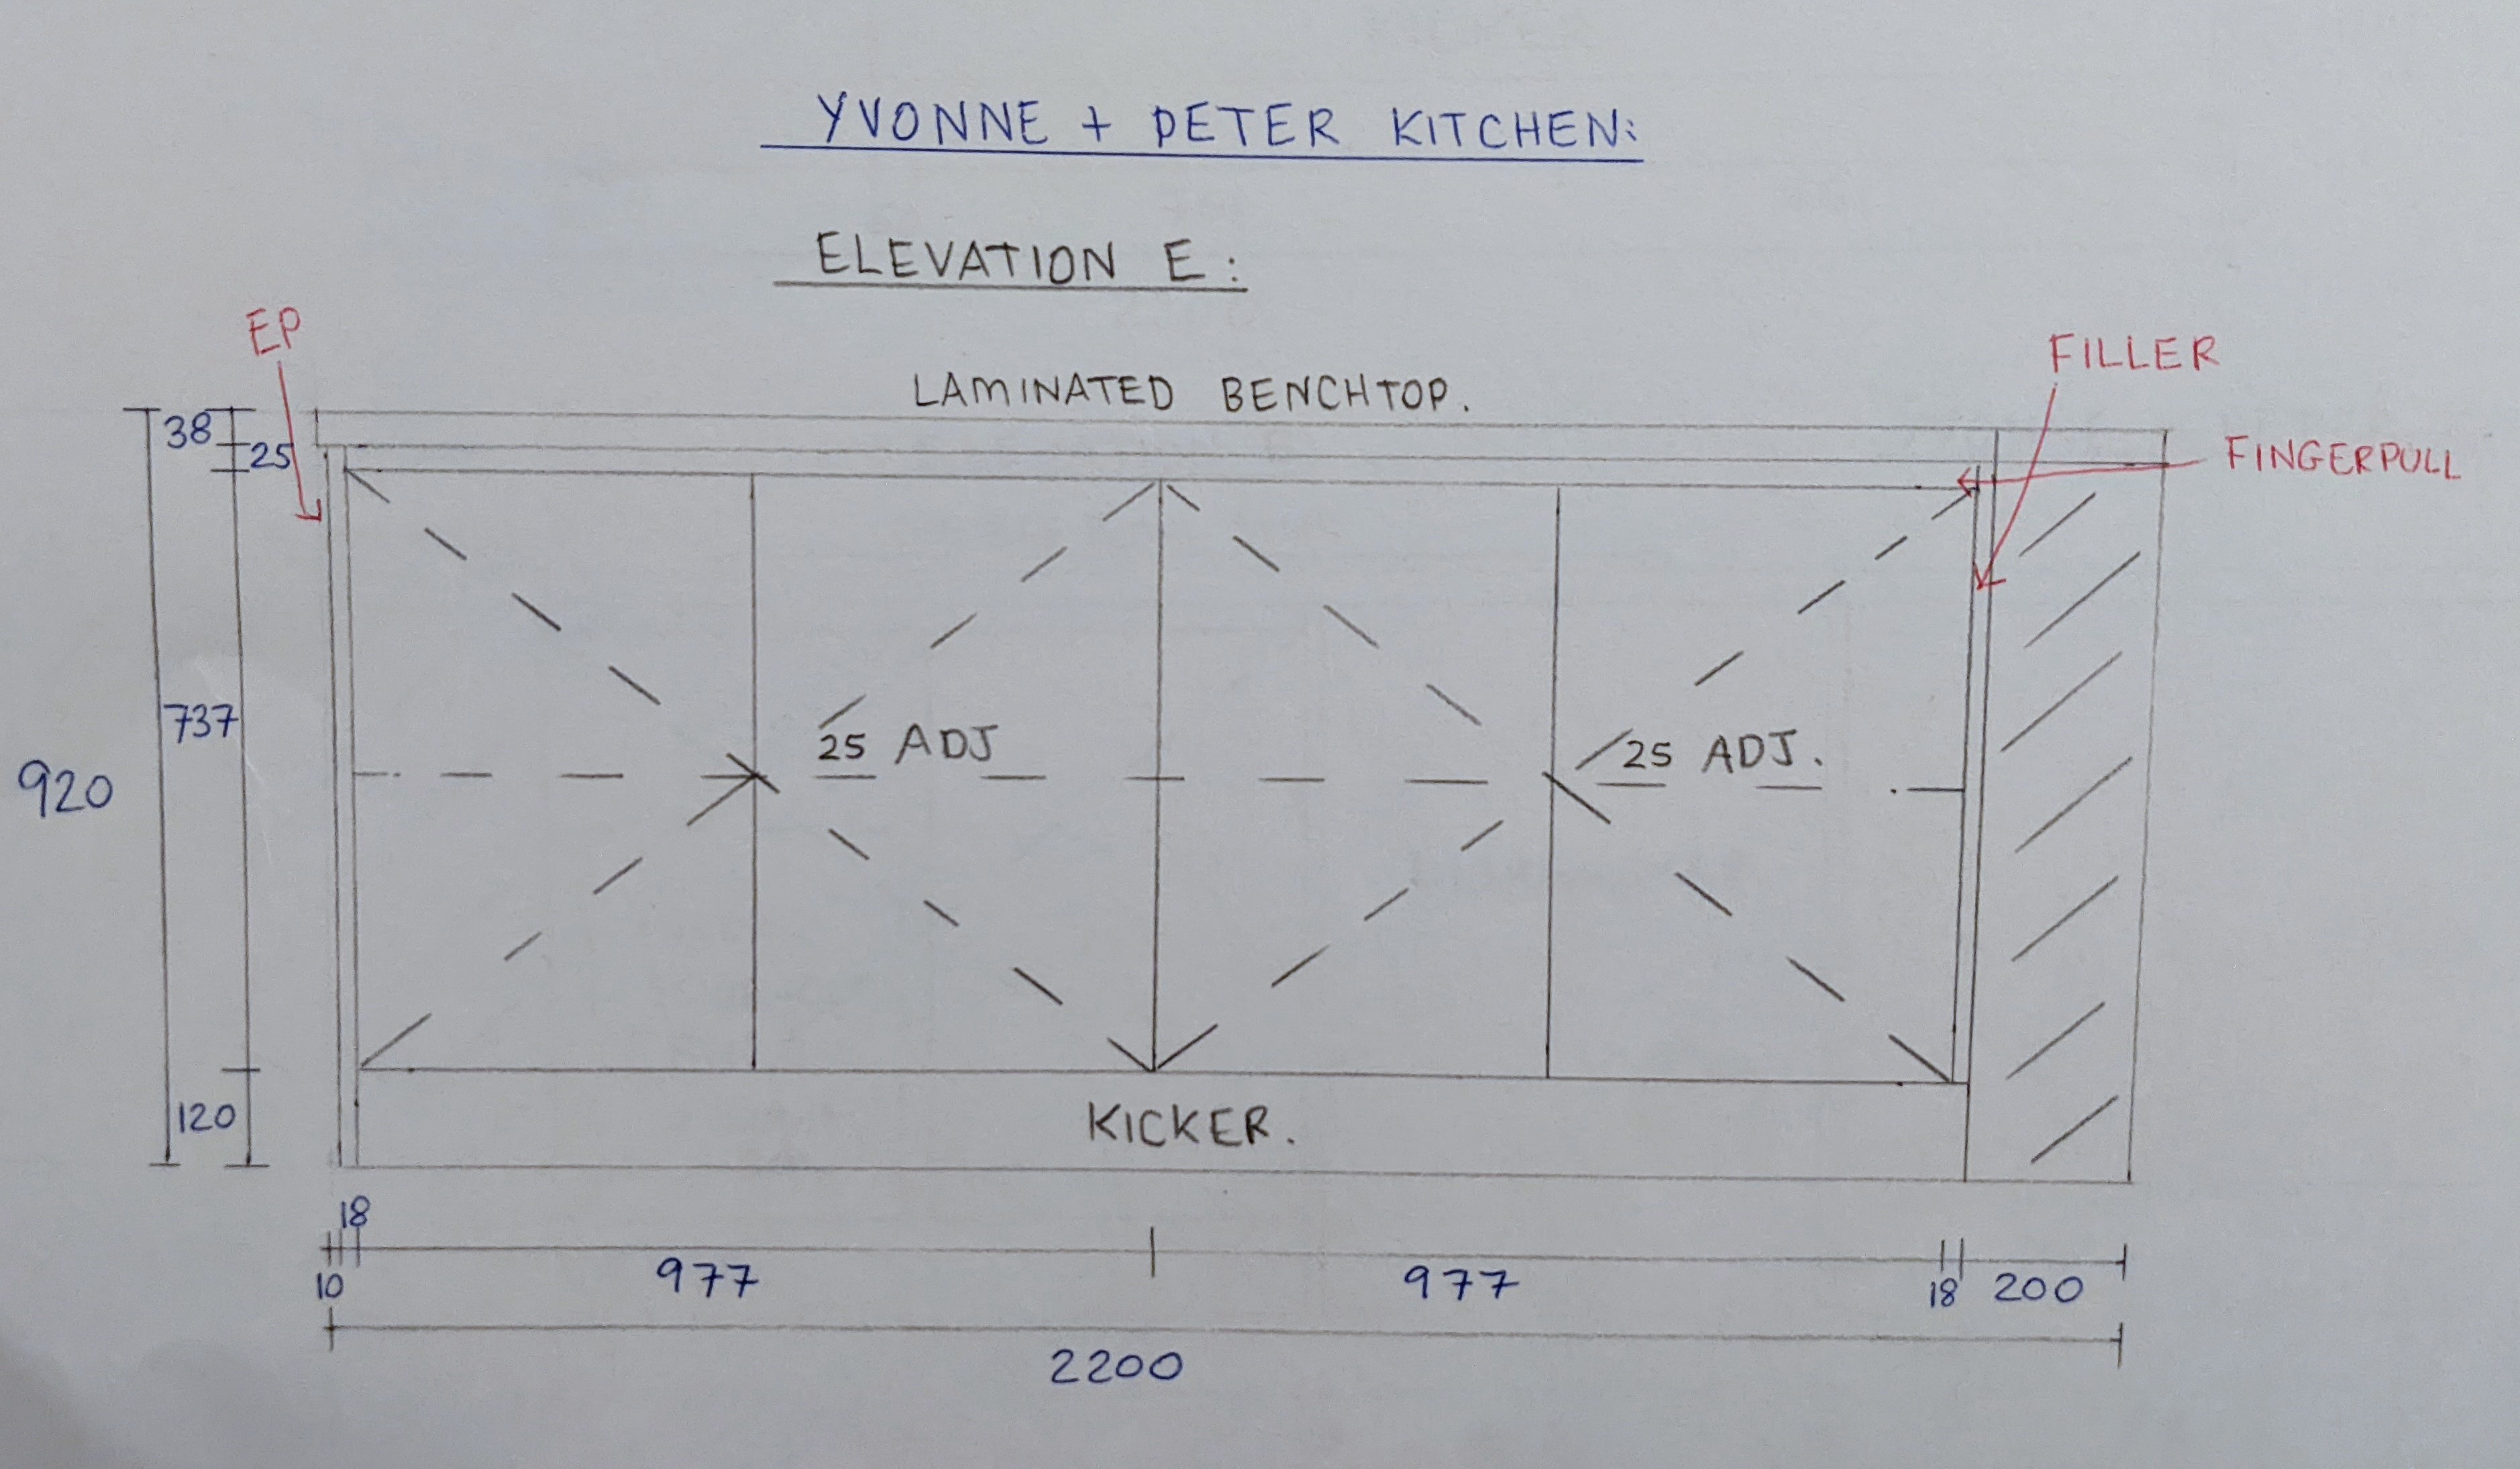 YVONNE + PETER KITCHEN:
ELEVATION E:
EP
FILLER
LAMINATED BENCHTOP.
38
25
FINGERPULL
737
25 ADJ
25 ADJ.
920
120
KICKER.
18
10
977
977
18
200
2200